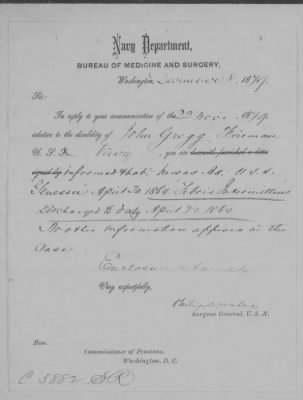 Navy Department,
BUREAU OF MEDICINE AND SURGERY,
Washington, December 8, 1879.
Sir:
In reply to your communication of the 22 Nov. 1879
relative to the disability of John Gregg Fireman
U. S. S. , you are herewith furnished a letter
informed that he was Ad. U.S.S.
Genesee April 20 1864 Febris Intermittens
Discharged to duty April 27 1864
No other information appears in the
Case.
Enclosure returned
Very respectfully,
Surgeon General, U. S. N.
Hon.
Commissioner of Pensions,
Washington, D. C.
C. 5882 S.R